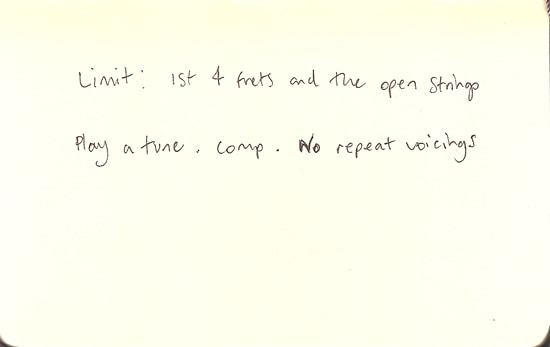 Limit: 1st 4 frets and the open strings
Play a tune. comp. No repeat voicings